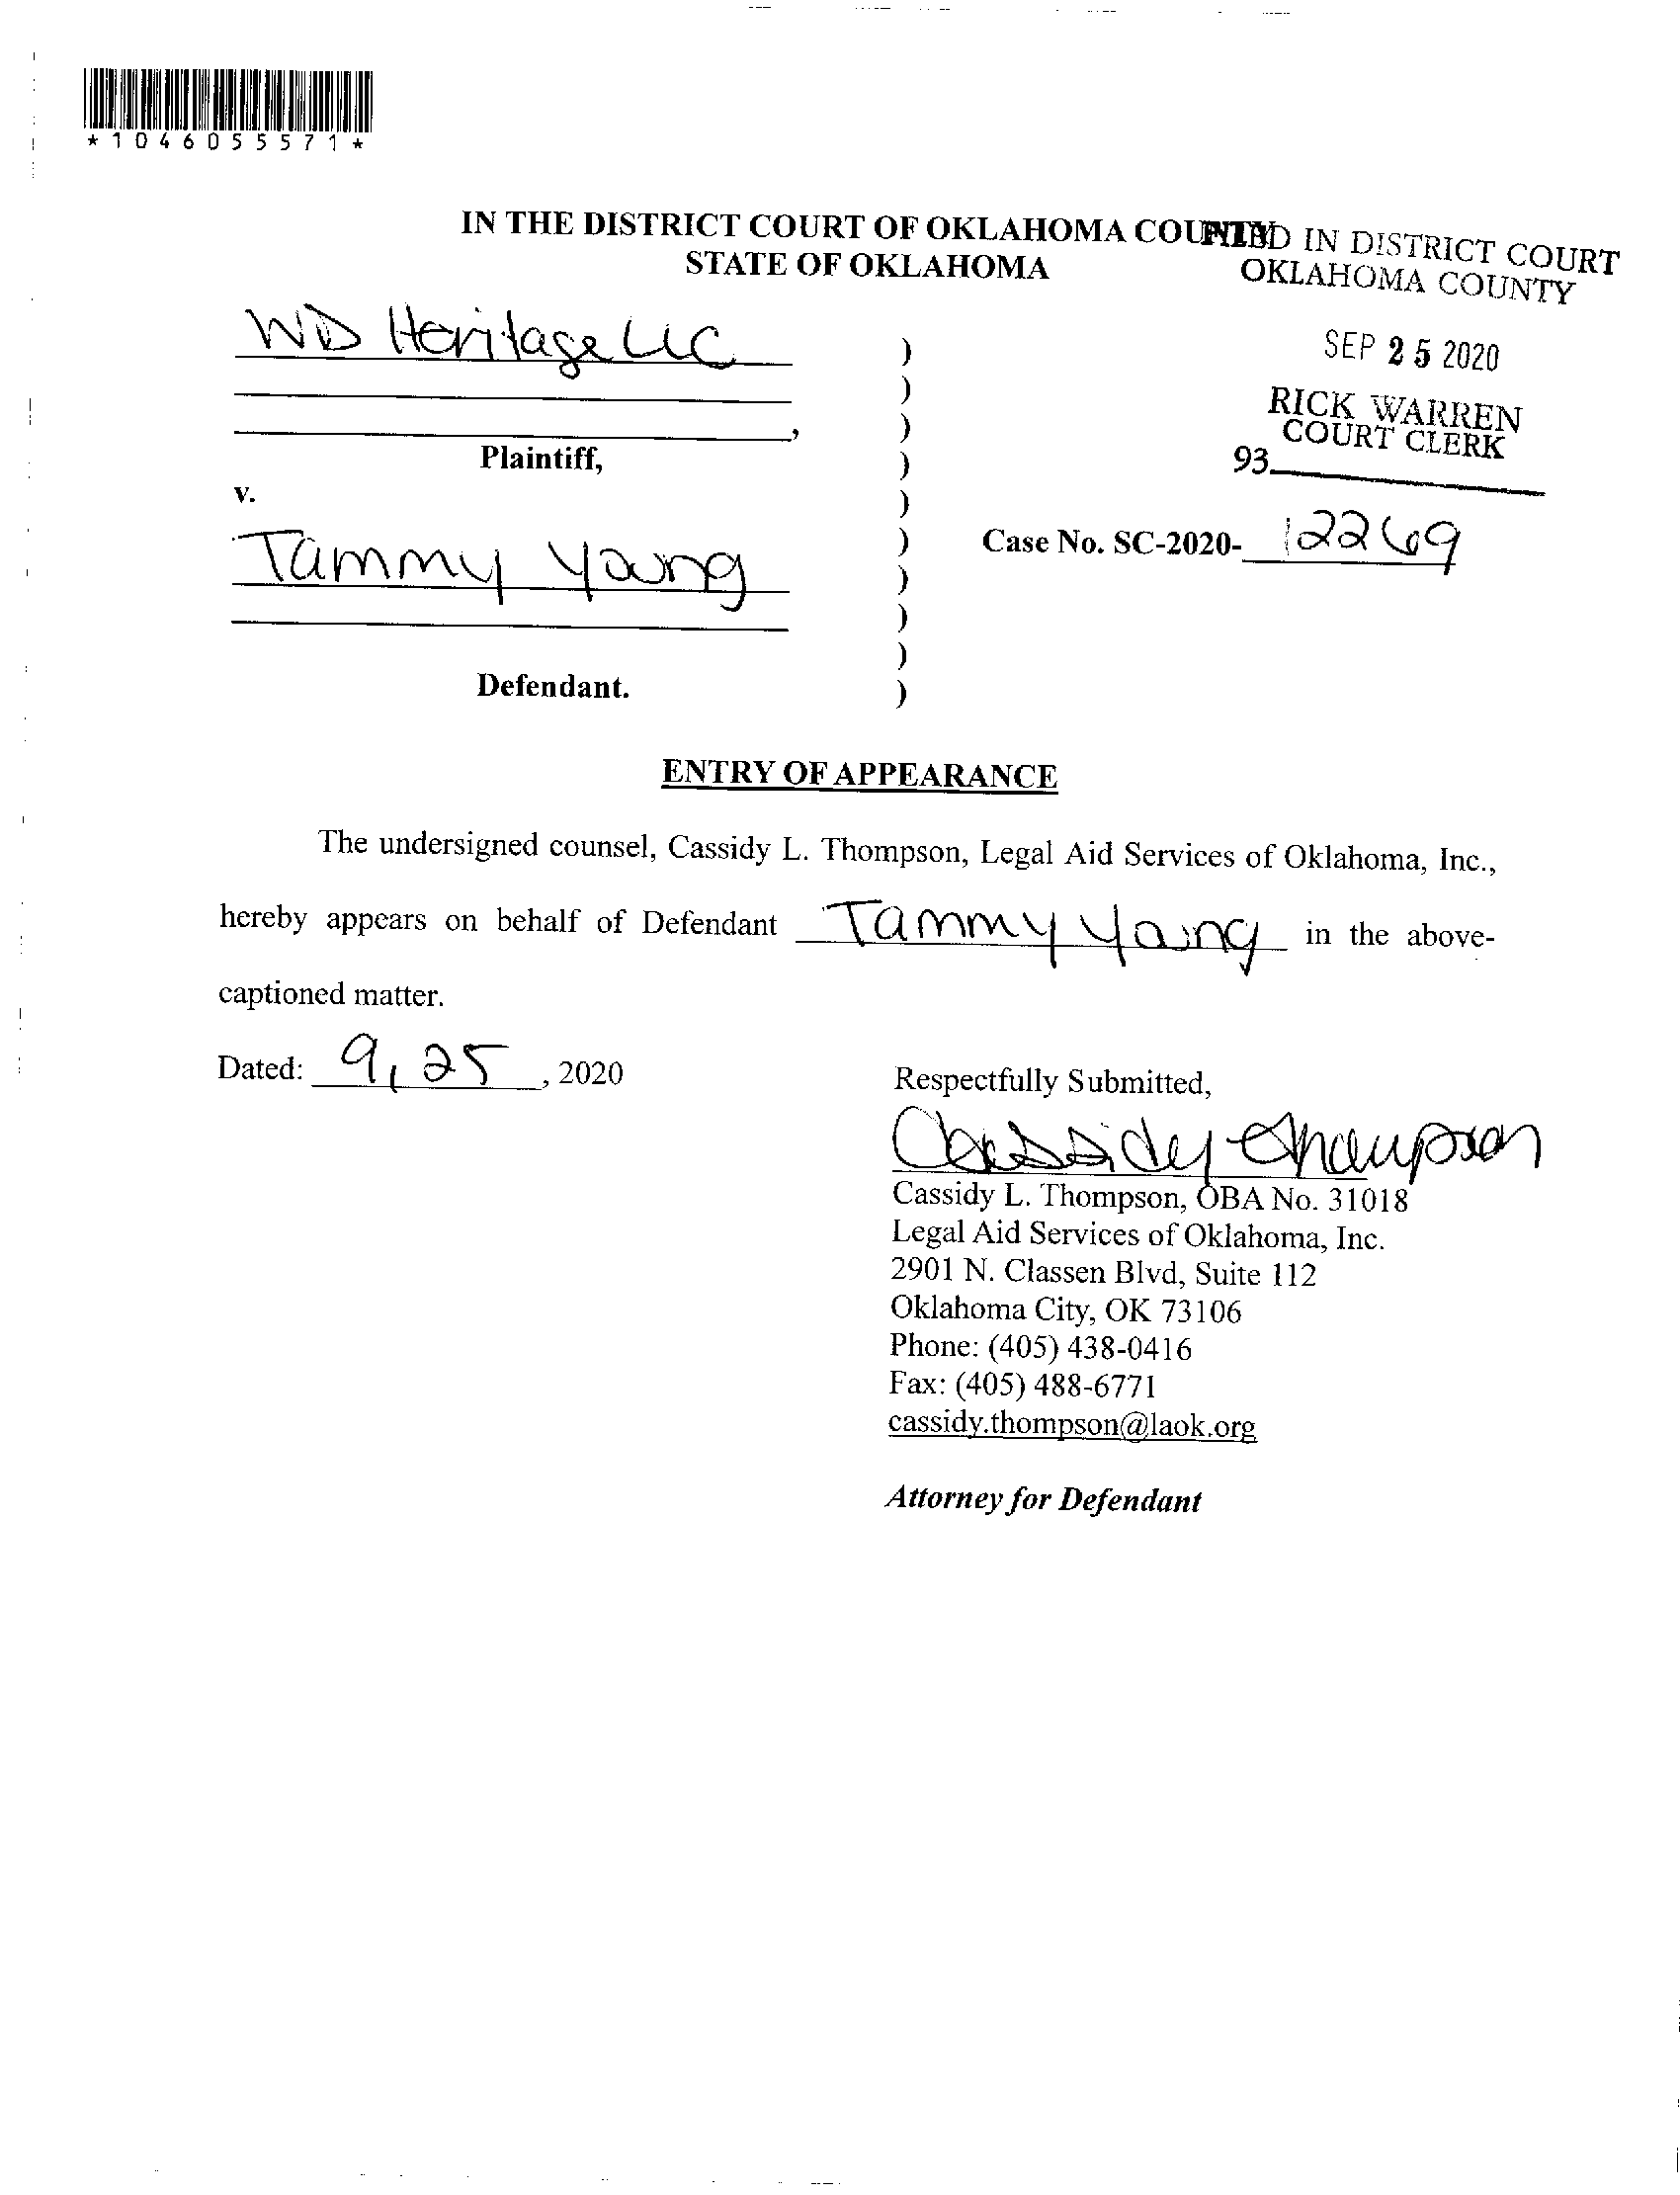 *1046055571*
IN THE DISTRICT COURT OF OKLAHOMA COUNTY
STATE OF OKLAHOMA
FILED IN DISTRICT COURT
OKLAHOMA COUNTY
SEP 25 2020
RICK WARREN
COURT CLERK
93
WD Heritage LLC )
)
, )
Plaintiff, )
v. )
Tammy Young ) Case No. SC-2020- 12269
)
)
)
Defendant. )
ENTRY OF APPEARANCE
The undersigned counsel, Cassidy L. Thompson, Legal Aid Services of Oklahoma, Inc.,
hereby appears on behalf of Defendant Tammy Young in the above-
captioned matter.
Dated: 9, 25, 2020
Respectfully Submitted,
Cassidy Thompson
Cassidy L. Thompson, OBA No. 31018
Legal Aid Services of Oklahoma, Inc.
2901 N. Classen Blvd, Suite 112
Oklahoma City, OK 73106
Phone: (405) 438-0416
Fax: (405) 488-6771
cassidy.thompson@laok.org
Attorney for Defendant